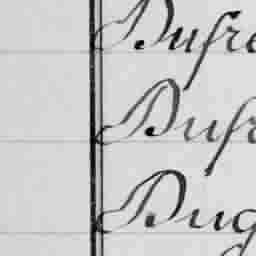 Dufre
Dufr
Dug